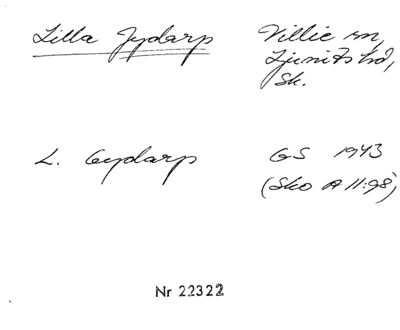 Lilla Jydarp
Villie sn,
Ljunits hd,
Sk.
L. Gydarp
GS 1943
(Sko A 11:98)
Nr 22322